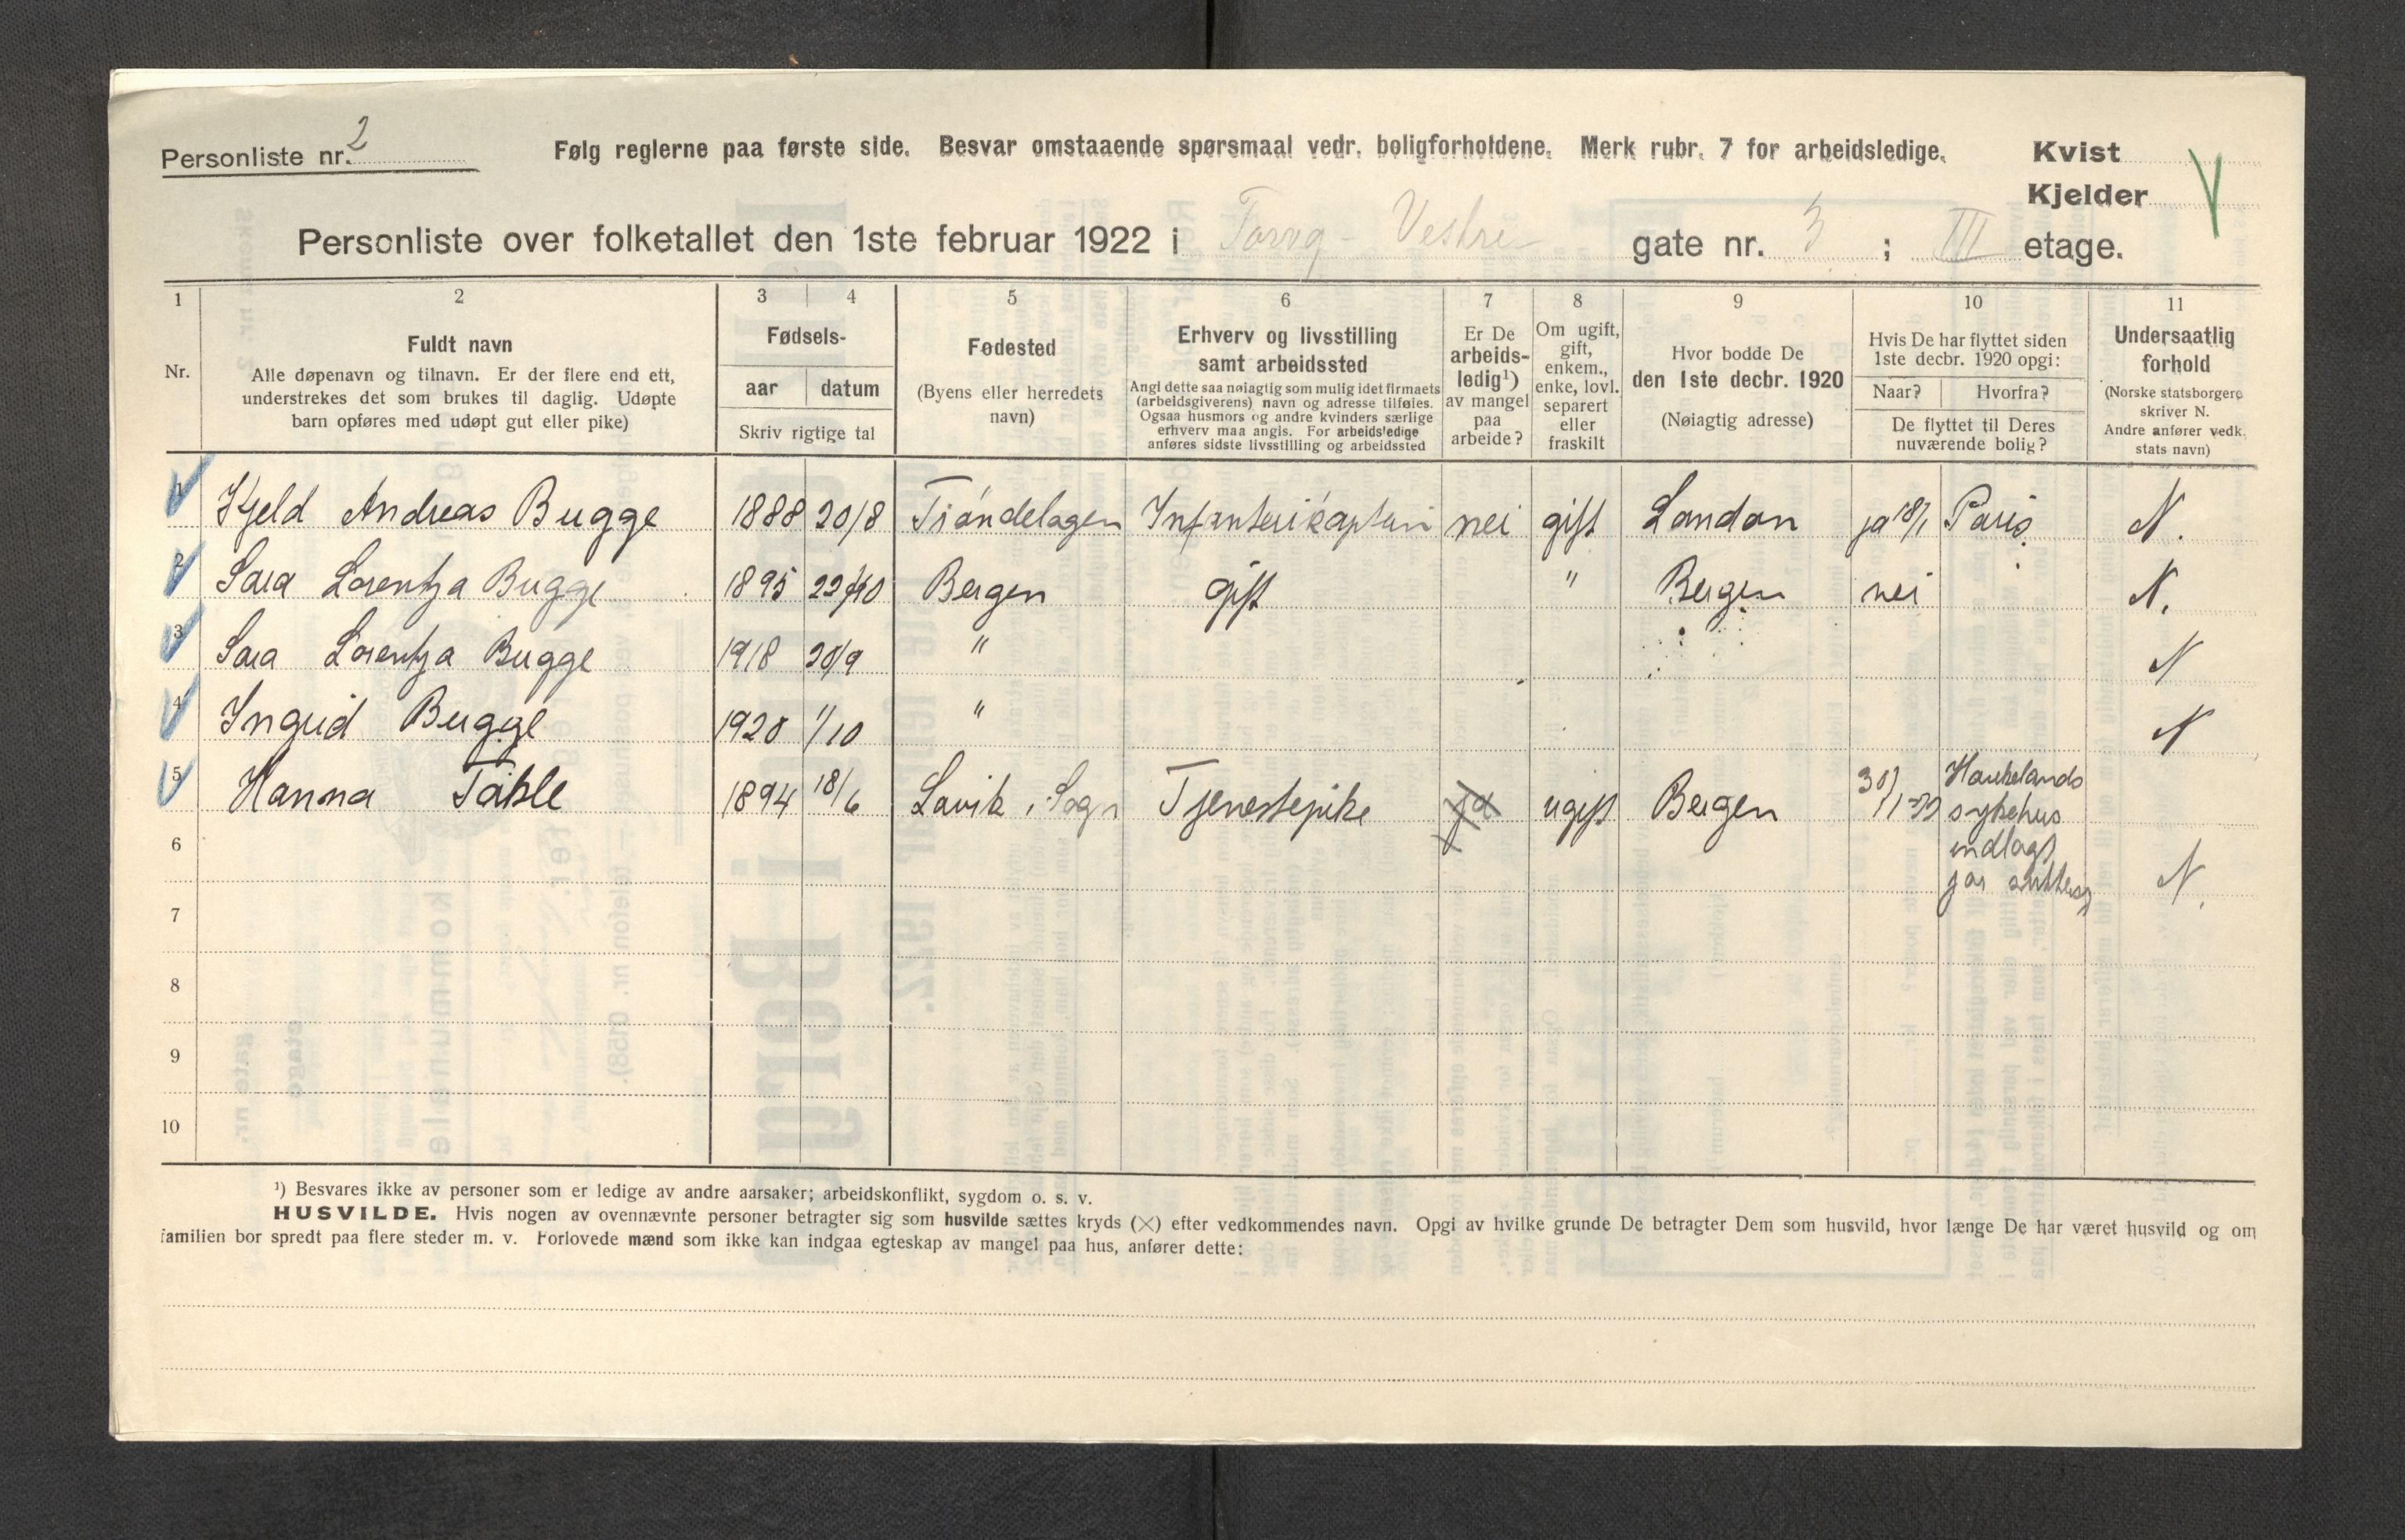 Personliste nr. 2
Følg reglerne paa første side. Besvar omstaaende spørsmaal vedr. boligforholdene. Merk rubr. 7 for arbeidsledige.
Kvist
Kjelder
Personliste over folketallet den 1ste februar 1922 i Torvg - Vestre gate nr. 3 ; III etage.
1 2 3 4 5 6 7 8 9 10 11
Nr.
Fuldt navn
Alle døpenavn og tilnavn. Er der flere end ett,
understrekes det som brukes til daglig. Udøpte
barn opføres med udøpt gut eller pike)
Fødsels-
aar datum
Skriv rigtige tal
Fødested
(Byens eller herredets
navn)
Erhverv og livsstilling
samt arbeidssted
Angi dette saa nøiagtig som mulig idet firmaets
(arbeidsgiverens) navn og adresse tilføies.
Ogsaa husmors og andre kvinders særlige
erhverv maa angis. For arbeidsledige
anføres sidste livsstilling og arbeidssted
Er De
arbeids-
ledig¹)
av mangel
paa
arbeide?
Om ugift,
gift,
enkem.,
enke, lovl.
separert
eller
fraskilt
Hvor bodde De
den 1ste decbr. 1920
(Nøiagtig adresse)
Hvis De har flyttet siden
1ste decbr. 1920 opgi:
Naar? Hvorfra?
De flyttet til Deres
nuværende bolig?
Undersaatlig
forhold
(Norske statsborgere
skriver N.
Andre anfører vedk.
stats navn)
1 Kjeld Andreas Bugge 1888 20/8 Trøndelagen Infanterikaptein nei gift London ja 18/1 Paris N.
2 Sara Lorentza Bugge 1895 22/10 Bergen gift " Bergen nei N.
3 Sara Lorentza Bugge 1918 20/9 " N
4 Ingrid Bugge 1920 1/10 " N
5 Hanna Takle 1894 18/6 Lavik i Sogn Tjenestepike ja ugift Bergen 30/1-22 Haukelands
sykehus
indlagt
for
N.
6
7
8
9
10
¹) Besvares ikke av personer som er ledige av andre aarsaker; arbeidskonflikt, sygdom o. s. v.
HUSVILDE. Hvis nogen av ovennævnte personer betragter sig som husvilde sættes kryds (×) efter vedkommendes navn. Opgi av hvilke grunde De betragter Dem som husvild, hvor længe De har været husvild og om
familien bor spredt paa flere steder m. v. Forlovede mænd som ikke kan indgaa egteskap av mangel paa hus, anfører dette: